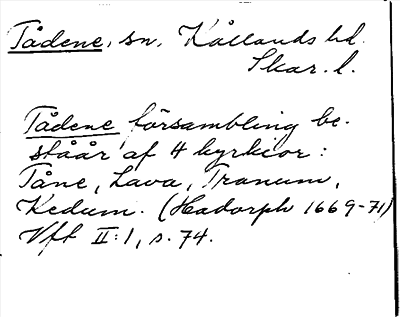 Tådene, sn, Kållands hd.
Skar. l.
Tådene försambling be-
ståår af 4 kyrkior:
Tåne, Lava, Tranum,
Kedum. (Hadorph 1669-71)
Vft II:1, s. 74.